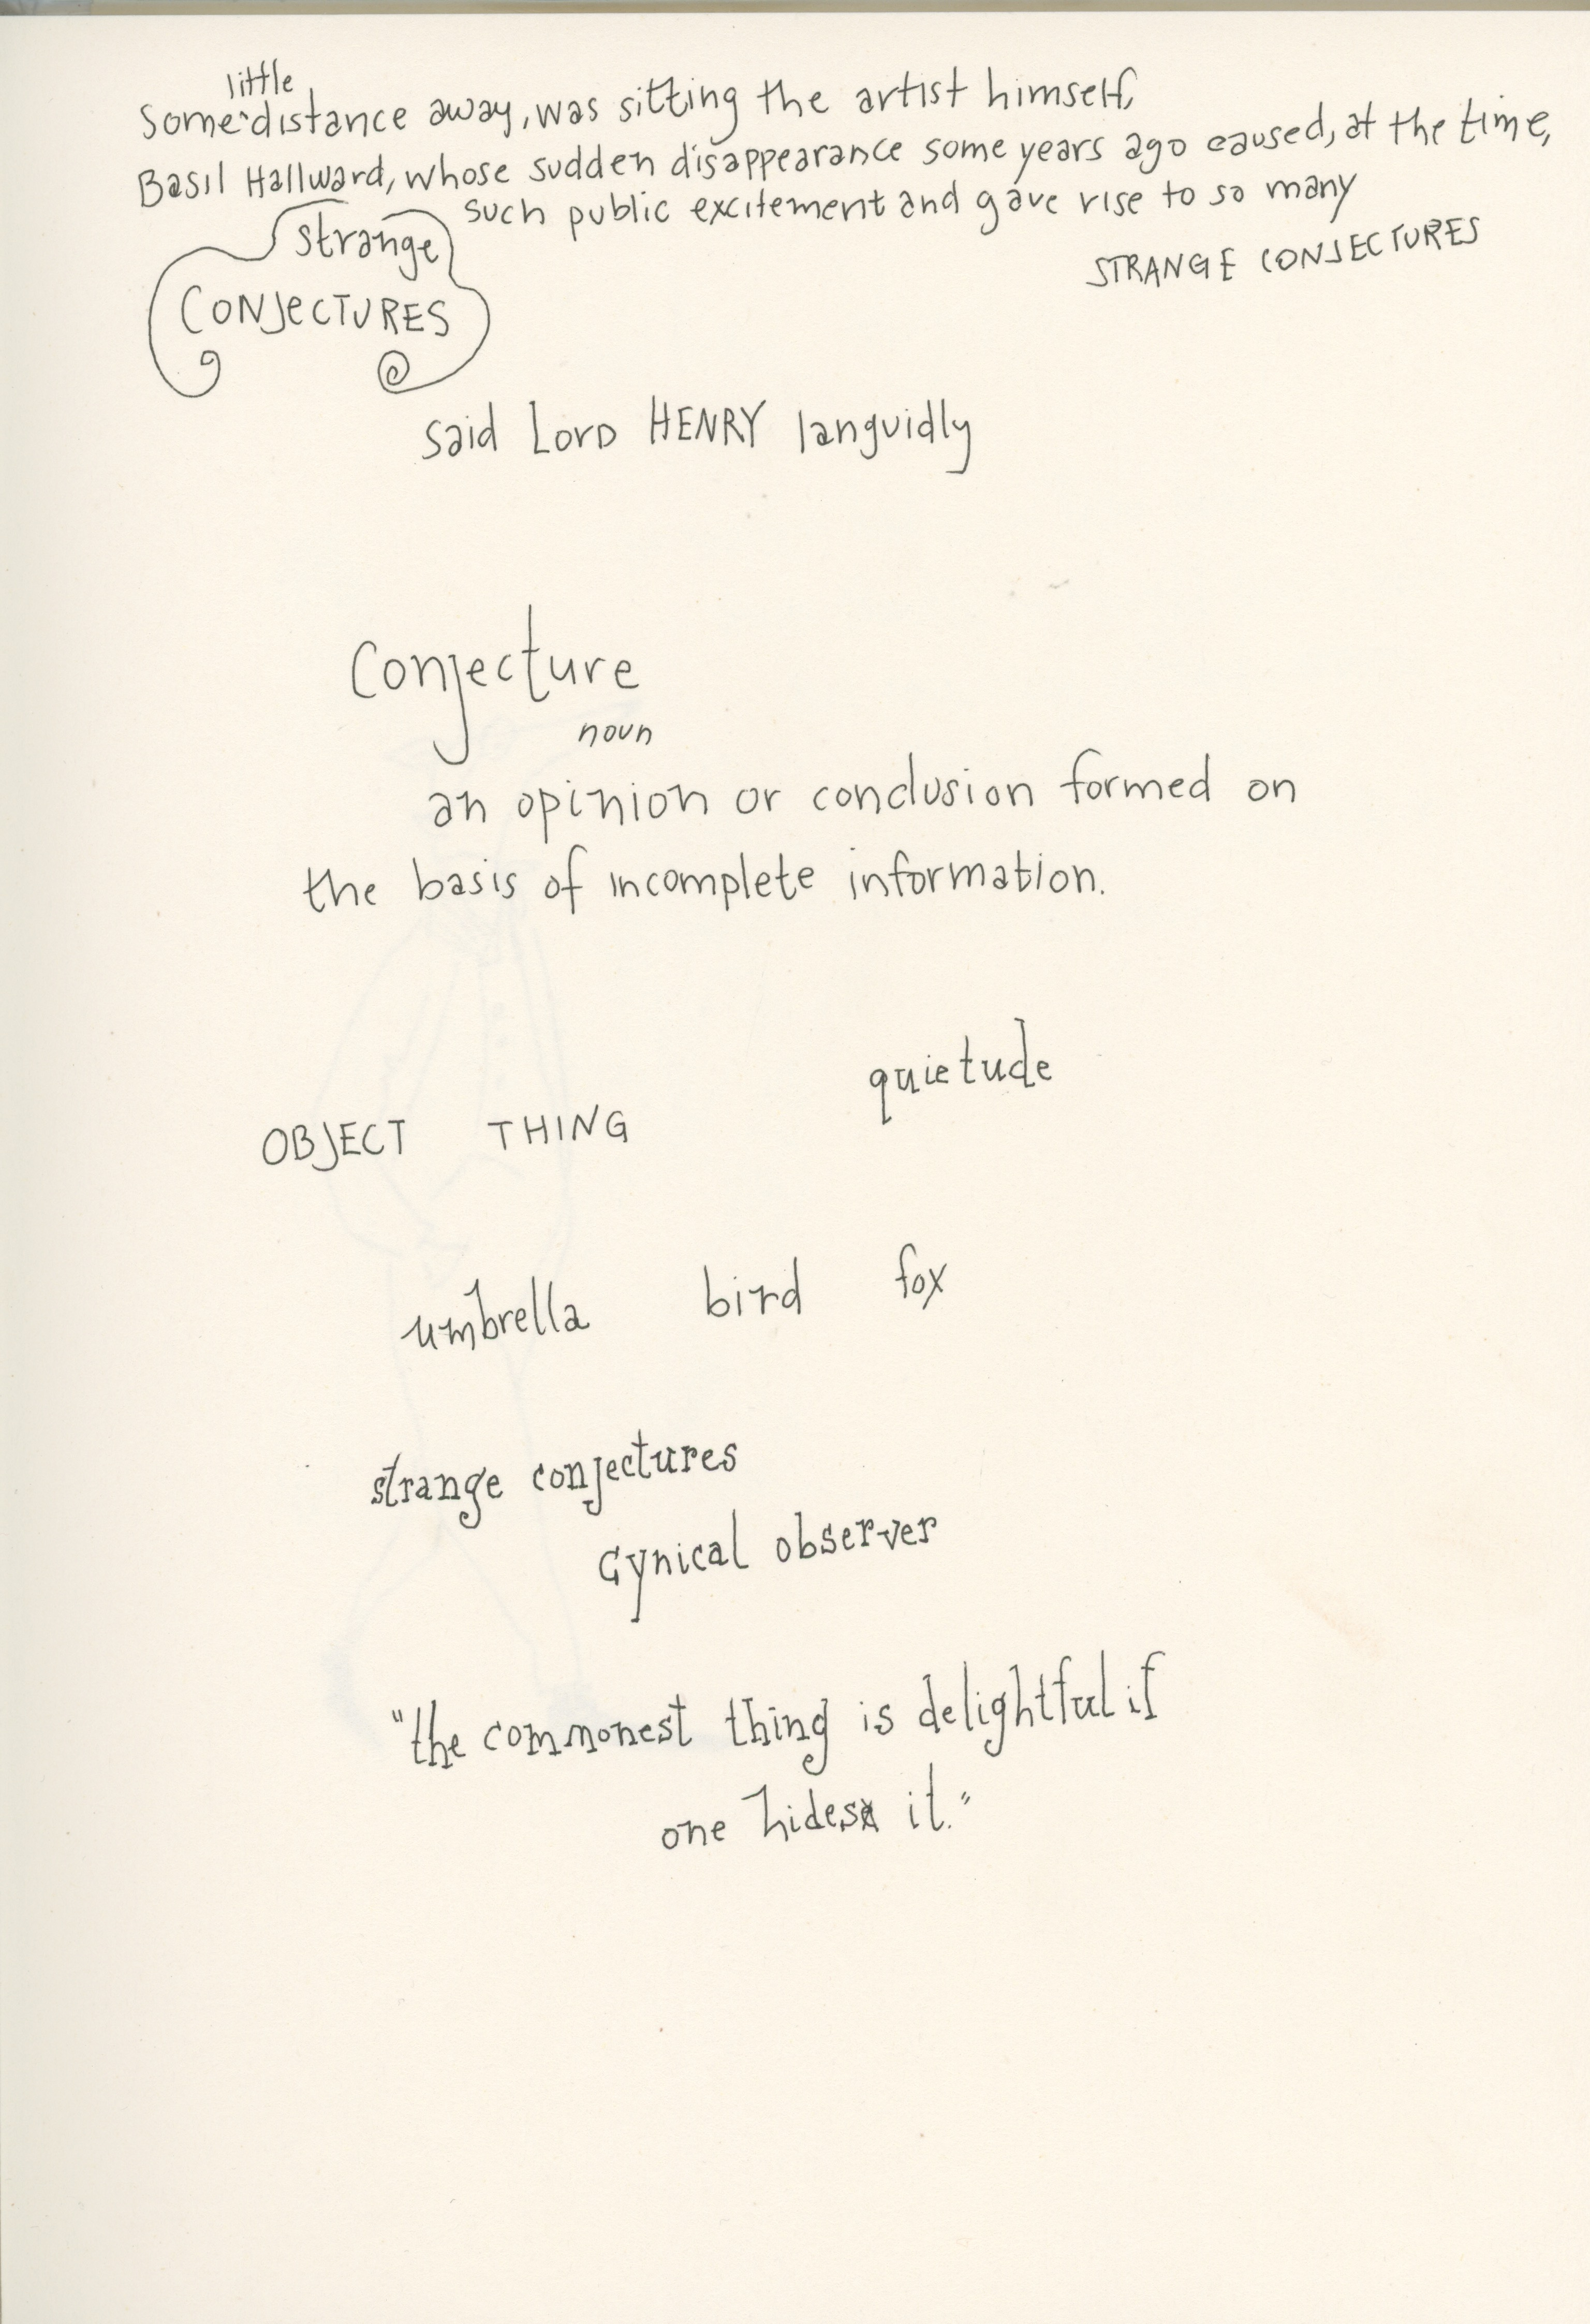 little
Some distance away, was sitting the artist himself,
Basil Hallward, whose sudden disappearance some years ago caused, at the time,
such public excitement and gave rise to so many
STRANGE CONJECTURES
strange
CONJECTURES
said Lord HENRY languidly
Conjecture
noun
an opinion or conclusion formed on
the basis of incomplete information.
quietude
OBJECT THING
umbrella bird fox
strange conjectures
cynical observer
"the commonest thing is delightful if
one hides it."